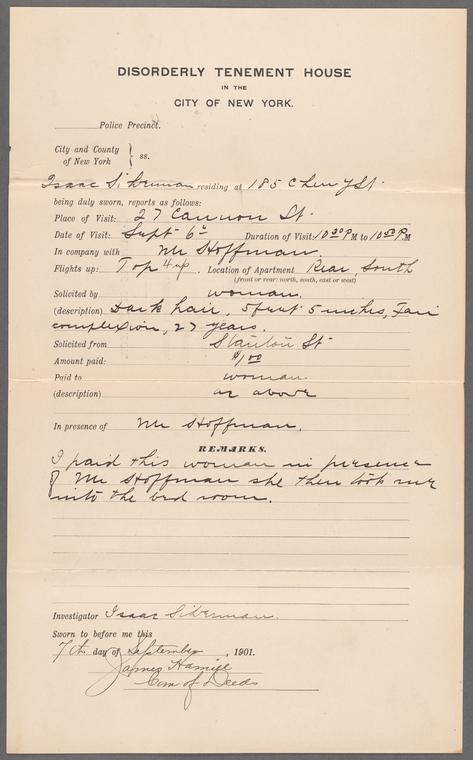 DISORDERLY TENEMENT HOUSE
IN THE
CITY OF NEW YORK.
Police Precinct.
City and County
of New York } ss.
Isaac Silverman residing at 185 Cherry St.
being duly sworn, reports as follows:
Place of Visit: 27 Cannon St.
Date of Visit: Sept 6th Duration of Visit: 10 30 P M to 10 50 P M
In company with Mr Hoffman
Flights up: Top 4 up. Location of Apartment Rear, South
(front or rear: north, south, east or west)
Solicited by woman.
(description) Dark hair, 5 feet 5 inches, Fair
complexion, 27 years.
Solicited from Stanton St
Amount paid: $1.00
Paid to woman
(description) as above
In presence of Mr Hoffman.
REMARKS.
I paid this woman in presence
of Mr Hoffman she then took me
into the bed room.
Investigator Isaac Silverman.
Sworn to before me this
7th day of September, 1901.
James Hamill
Com of Deeds